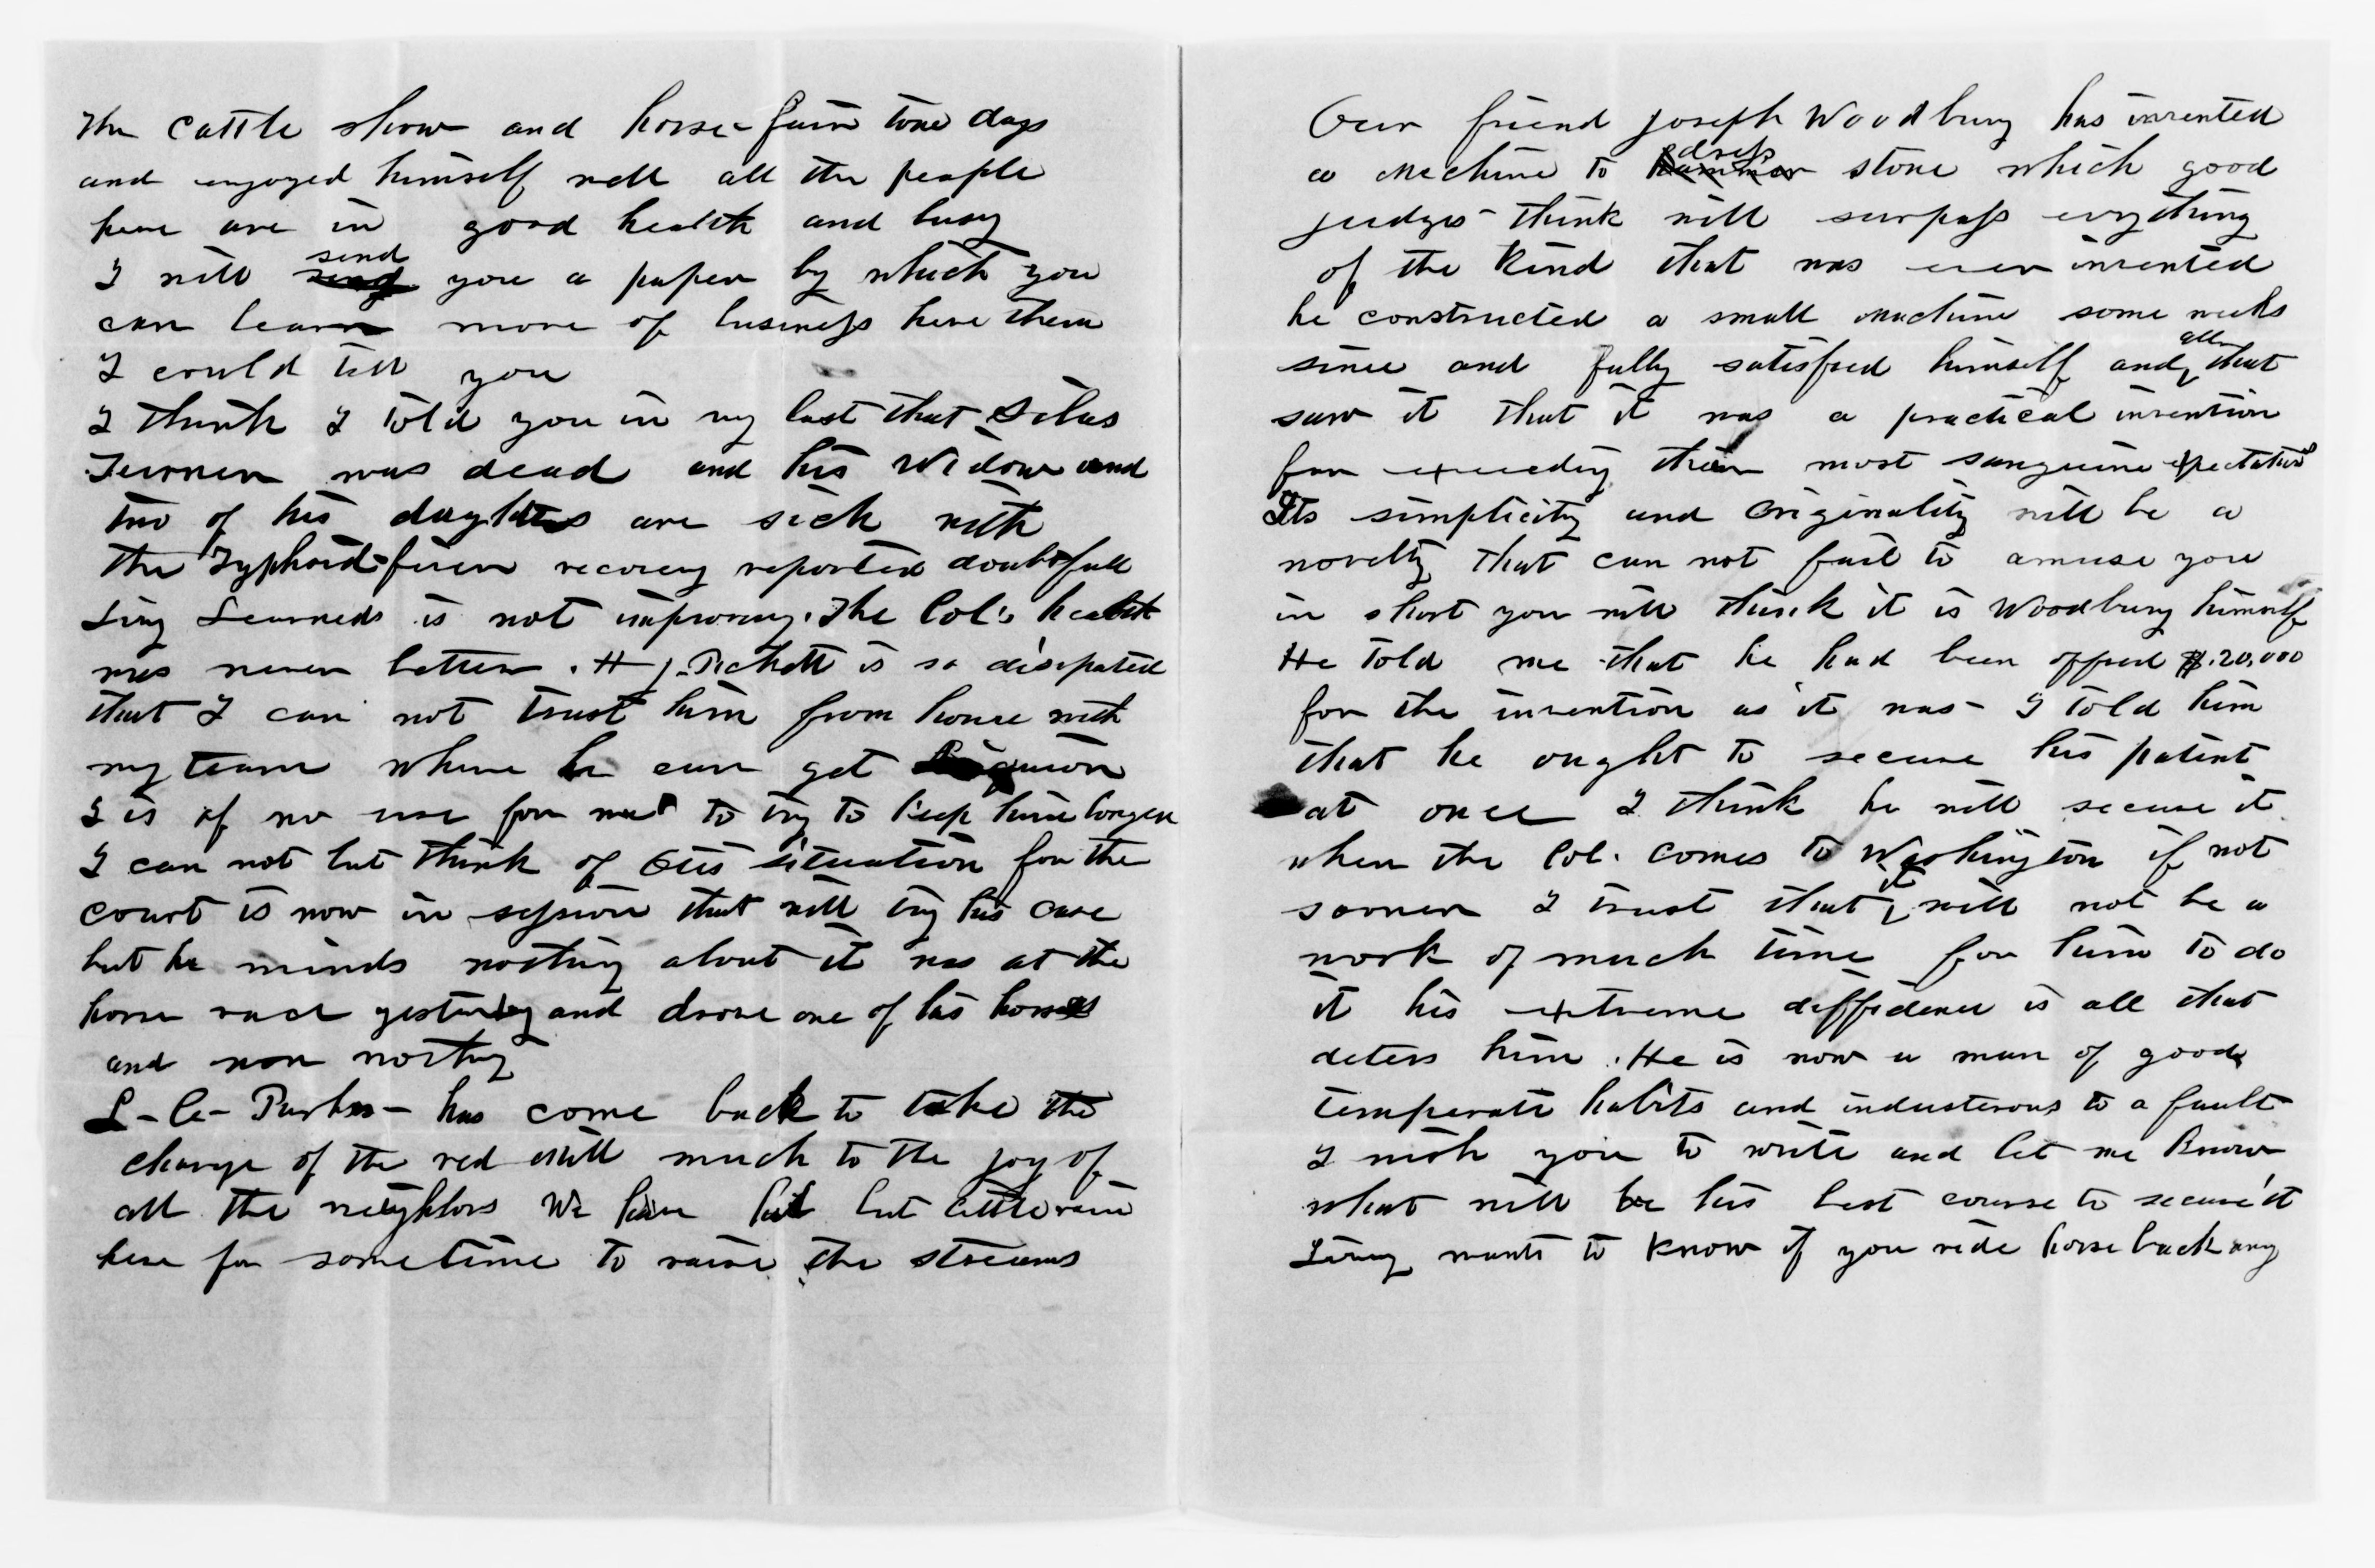 the cattle show and horse-fair two days
and enjoyed himself well all the people
here are in good health and busy
I will send you a paper by which you
can learn more of business here then
I could tell you
I think I told you in my last that Silas
Turner was dead and his Widow and
two of his daughters are sick with
the Typhoid-fever recovery reported doubtfull
Learneds is not improving. The Col's health
was never better. H J. Pickett is so disipated
that I can not trust him from home with
my team where he can get liquor
I is of no use for me to try to keep him longer
I can not but think of Otis situation for the
court is now in session that will try his case
but he minds nothing about it was at the
horse race yesterday and drove one of his horses
and won nothing
L-C- Parker- has come back to take the
charge of the red mill much to the joy of
all the neighbors We have had but little rain
here for sometime to raise the streams
Our friend Joseph Woodbury has invented
a Machine to dress stone which good
judges think will surpass evrything
of the Kind that was ever invented
he constructed a small machine some weeks
since and fully satisfied himself and all that
saw it that it was a practical invention
far exceeding their most sanguine expectations
Its simplicity and originality will be a
novelty that can not fail to amuse you
in short you will think it is Woodbury himself
He told me that he had been offred $.20,000
for the invention as it was- I told him
that he ought to secure his patent
at once I think he will secure it
when the Col. comes to Washington if not
sooner I trust that it will not be a
work of much time for him to do
it his extreme diffidence is all that
deters him. He is now a man of good
temperate habits and industerous to a fault
I wish you to write and let me Know
what will be his best course to secure it
wants to Know if you ride horse back any